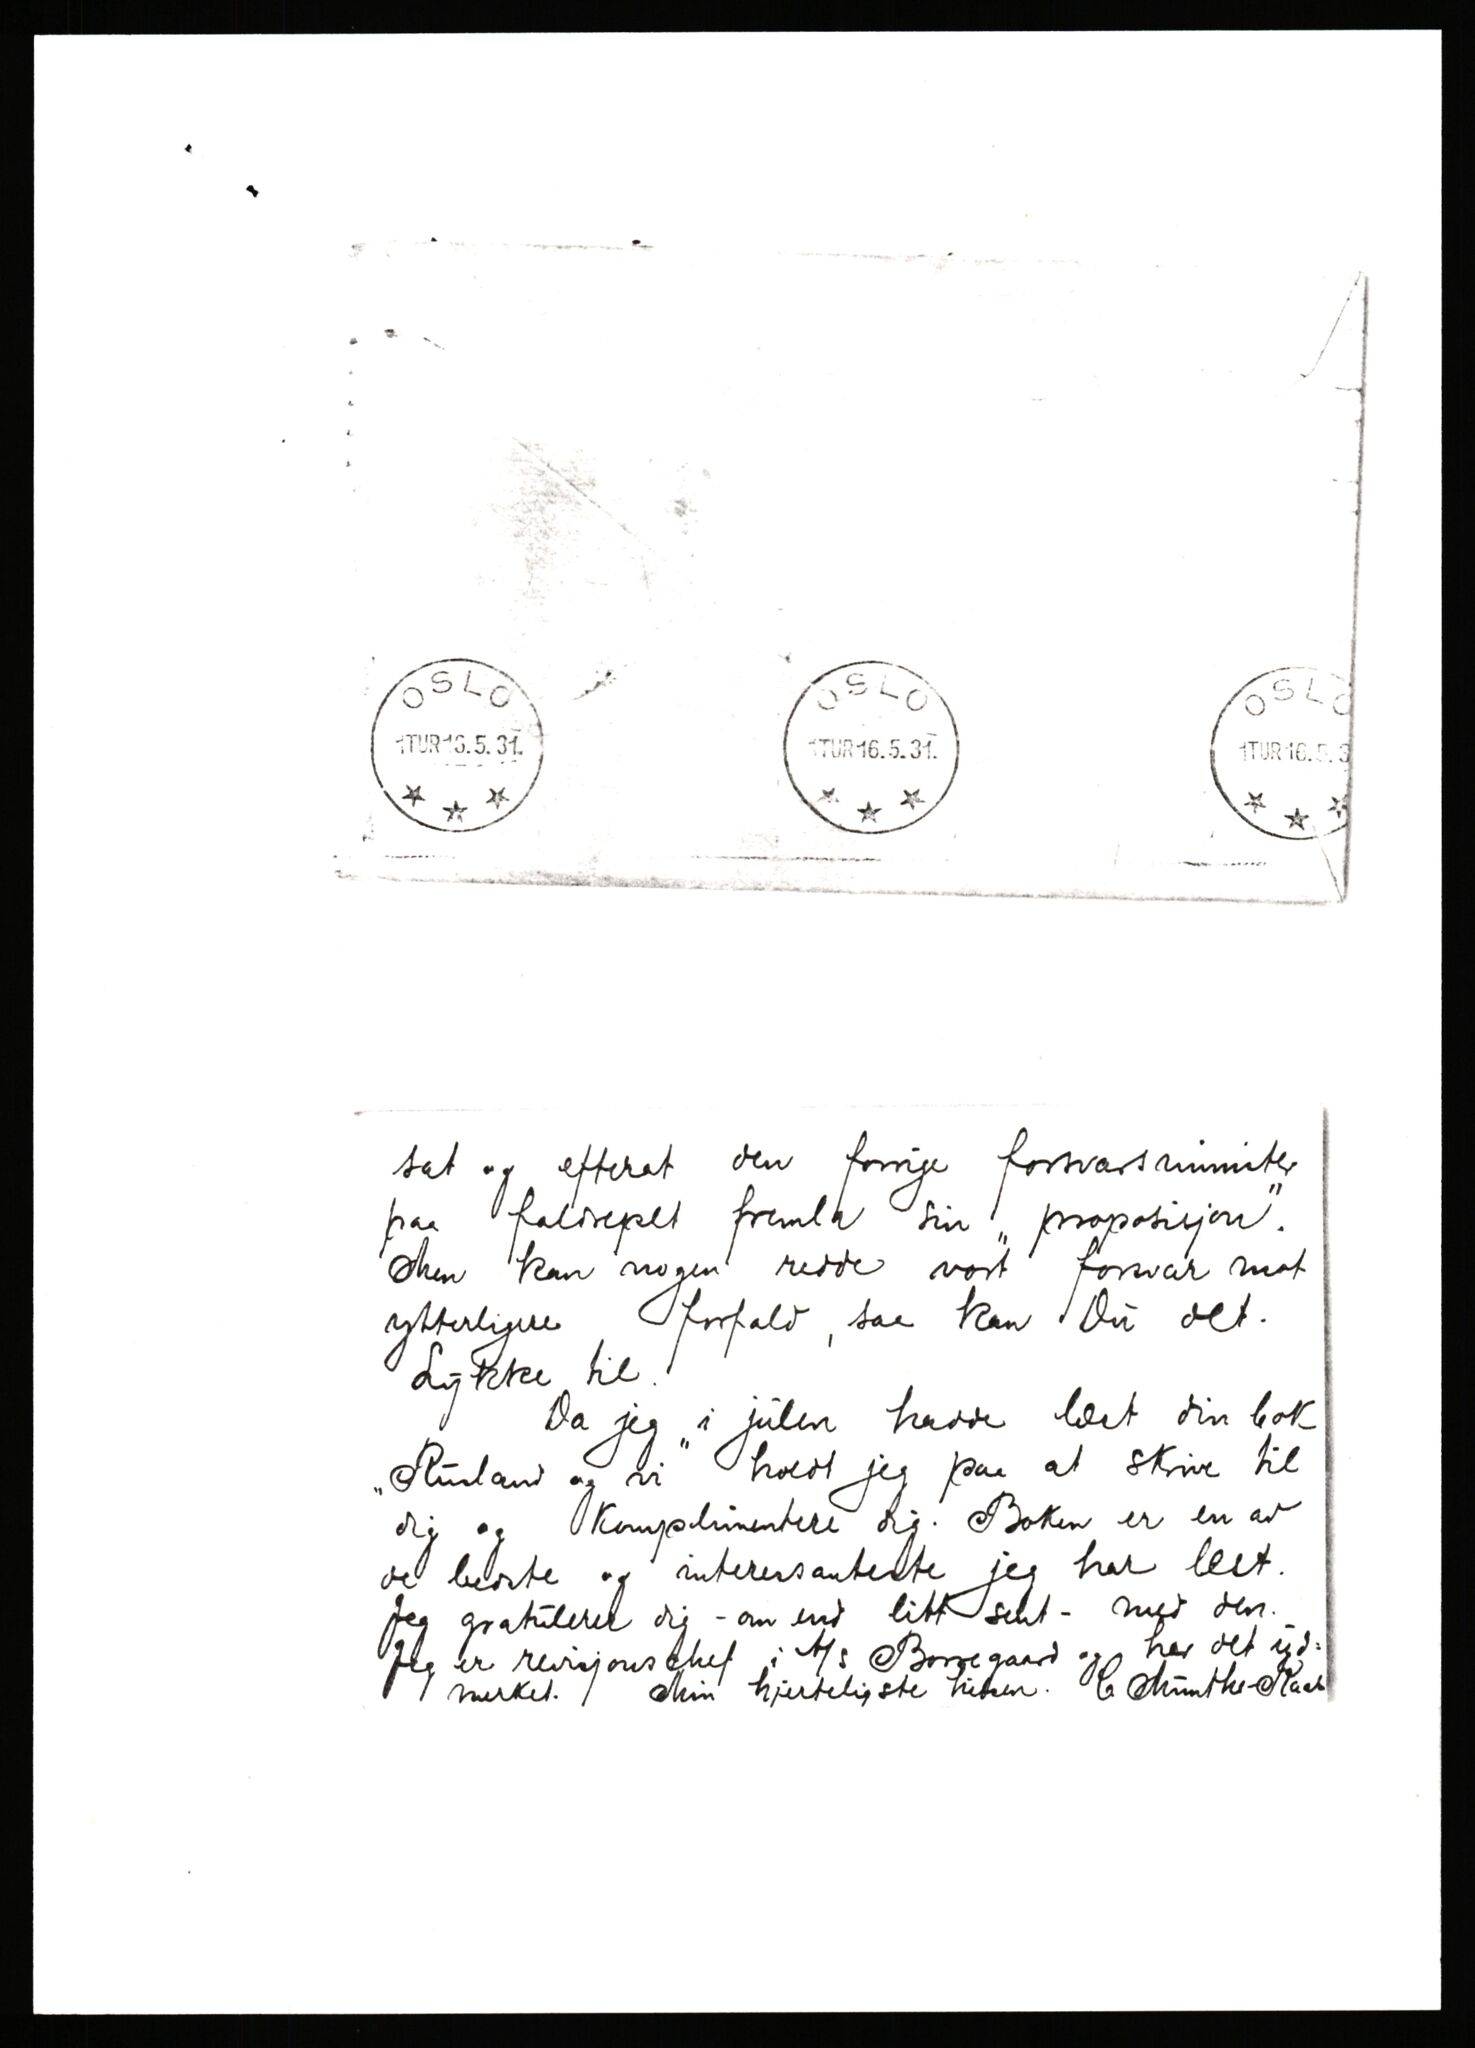 OSLO OSLO OSLO
1TUR16.5.31. 1TUR16.5.31. 1TUR16.5.3
sat og efterat den forrige forsvarsminister
paa faldrepet fremla sin „proposisjon”.
Men kan nogen redde vort forsvar mot
ytterligere forfald, saa kan Du det.
Lykke til.
Da jeg i julen hadde læst din bok
„Rusland og vi” holdt jeg paa at skrive til
dig og komplimentere dig. Boken er en av
de bedste og interessanteste jeg har læst.
Jeg gratulerer dig - om end litt sent - med den.
Jeg er revisjonschef i A/s Borregaard og har det ud=
merket. Min hjerteligste hilsen. C Munthe-Kaas